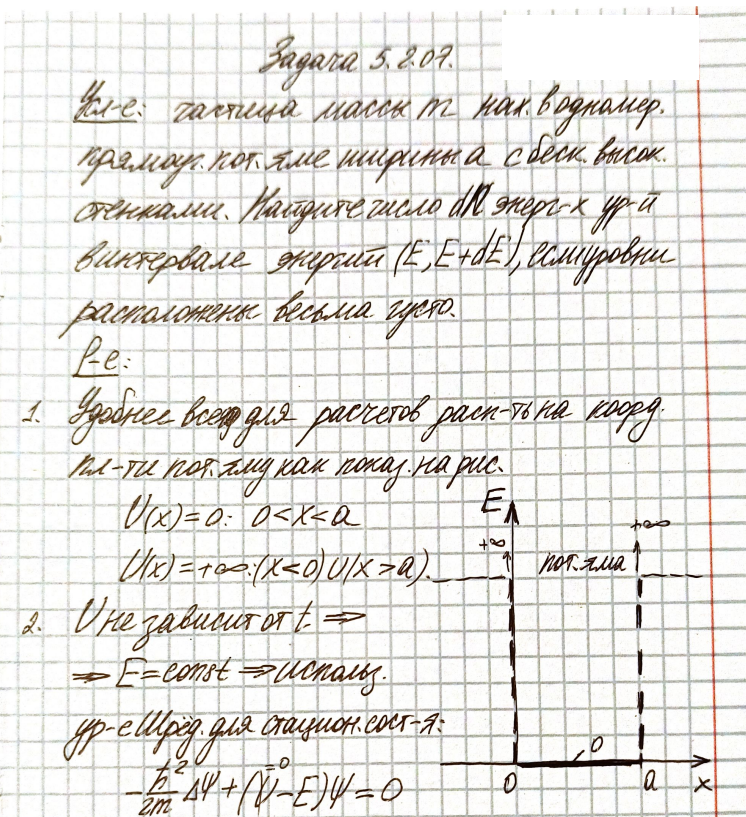 Задача 5.2.07.
Усл-е: частица массы m нах. в одномер.
прямоуг. пот. яме ширины a с беск. высок.
стенками. Найдите число dN энерг-х ур-й
в интервале энергий (E, E+dE), если уровни
расположены весьма густо.
Р-е:
1. Удобнее всего для расчетов расп-ть на коорд.
пл-ти пот. яму как показ. на рис.
U(x)=0: 0<x<a
U(x)=+∞:(x<0)U(x>a).
2. U не зависит от t ⇒
⇒ E=const ⇒ использ.
ур-е Шрёд. для стацион. сост-я:
-ħ²/2m ΔΨ+(U-E)Ψ=0
=0
E
+∞
+∞
пот. яма
0
0
a
x